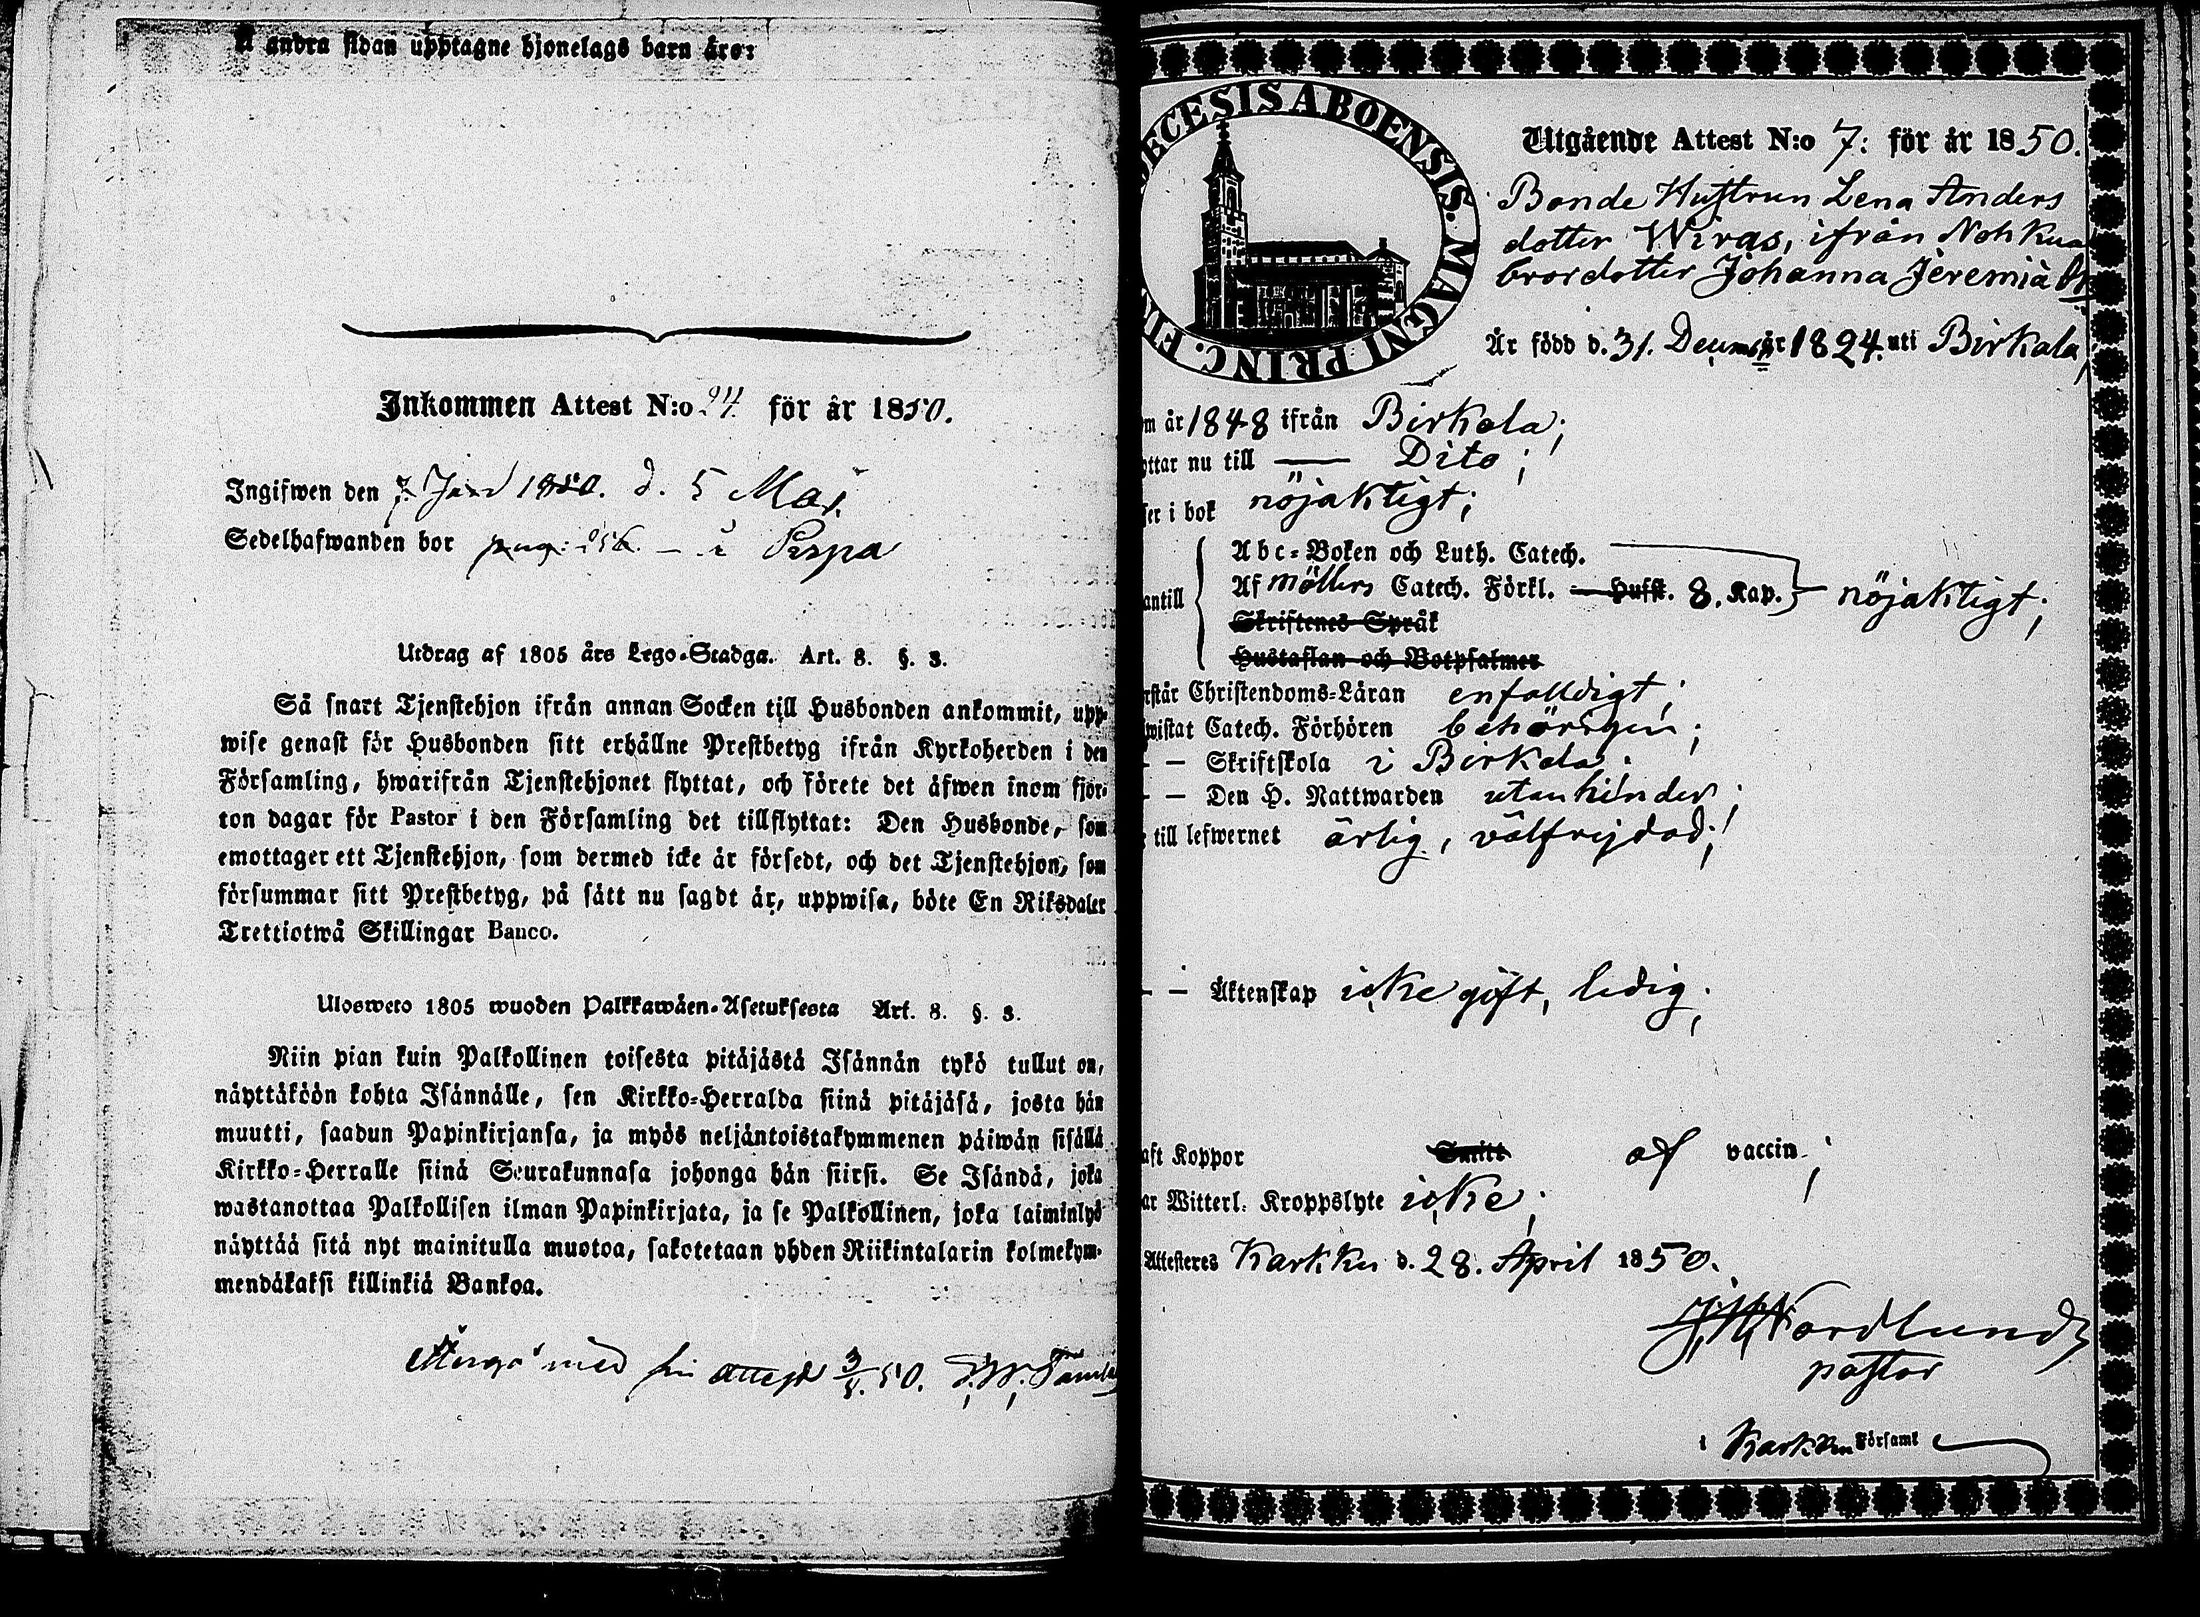 å andra sidan upptagne hjonelags barn äro:
Inkommen Attest N:o 24. för år 1850.
Ingifwen den 7. 1850. d. 5 Maj
Sedelhafwanden bor pag: 256. — i Pispa
Utdrag af 1805 års Lego-Stadga. Art. 8. §. 3.
Så snart Tjenstehjon ifrån annan Socken till Husbonden ankommit, upp-
wise genast för Husbonden sitt erhållne Prestbetyg ifrån Kyrkoherden i den
Församling, hwarifrån Tjenstehjonet flyttat, och förete det äfwen inom fjor-
ton dagar för Pastor i den Församling det tillflyttat: Den Husbonde, som
emottager ett Tjenstehjon, som dermed icke är försedt, och det Tjenstehjon, som
försummar sitt Prestbetyg, på sätt nu sagdt är, uppwisa, böte En Riksdaler
Trettiotwå Skillingar Banco.
Ulosweto 1805 wuoden Palkkawäen-Asetuksesta Art. 8. §. 3.
Niin pian kuin Palkollinen toisesta pitäjästä Isännän tykö tullut on,
näyttäköön kohta Isännälle, sen Kirkko-Herralda siinä pitäjäsä, josta hän
muutti, saadun Papinkirjansa, ja myös neljäntoistakymmenen päiwän sisällä
Kirkko-Herralle siinä Seurakunnasa johonga hän siirsi. Se Isändä, joka
wastanottaa Palkollisen ilman Papinkirjata, ja se Palkollinen, joka laiminlyö
näyttää sitä nyt mainitulla muotoa, sakotetaan yhden Riikintalarin kolmekym-
mendäkaksi killinkiä Bankoa.
Återgå med sin attest 3/8. 50.
DECESIS ABOENSIS. MAGNI PRINC. FIN
Utgående Attest N:o 7: för år 1850.
Bonde Hustrun Lena Anders
dotter Wiras, ifrån Nohkua
brorsdotter Johanna Jeremiä dr
Är född d. 31. December 1824. uti Birkala;
m år 1848 ifrån Birkala;
ttar nu till — Dito;
ser i bok nöjaktigt;
antill
Abc-Boken och Luth. Catech.
Af Möllers Catech. Förkl. — Hufst. 8. Kap. — nöjaktigt;
Skriftenes Språk
Hustaflan och Botpsalmer
rstår Christendoms-Läran enfalldigt;
wistat Catech. Förhören behörigen;
— — Skriftskola i Birkala;
— — Den H. Nattwarden utan hinder;
till lefwernet ärlig, välfrejdad;
— — Äktenskap icke gift, ledig;
aft Koppor Smitt af vaccin;
ar Witterl. Kroppslyte icke;
Attesteres Karkku d. 28. April 1850.
Nordlund
pastor
i Karkku Församl